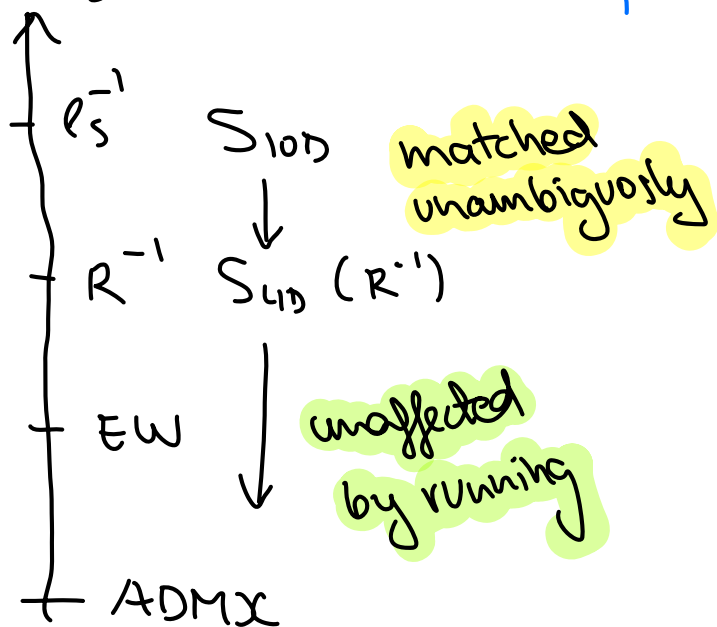 ℓs⁻¹ S10D matched
unambiguosly
R⁻¹ S4D (R⁻¹)
EW unaffected
by running
ADMX